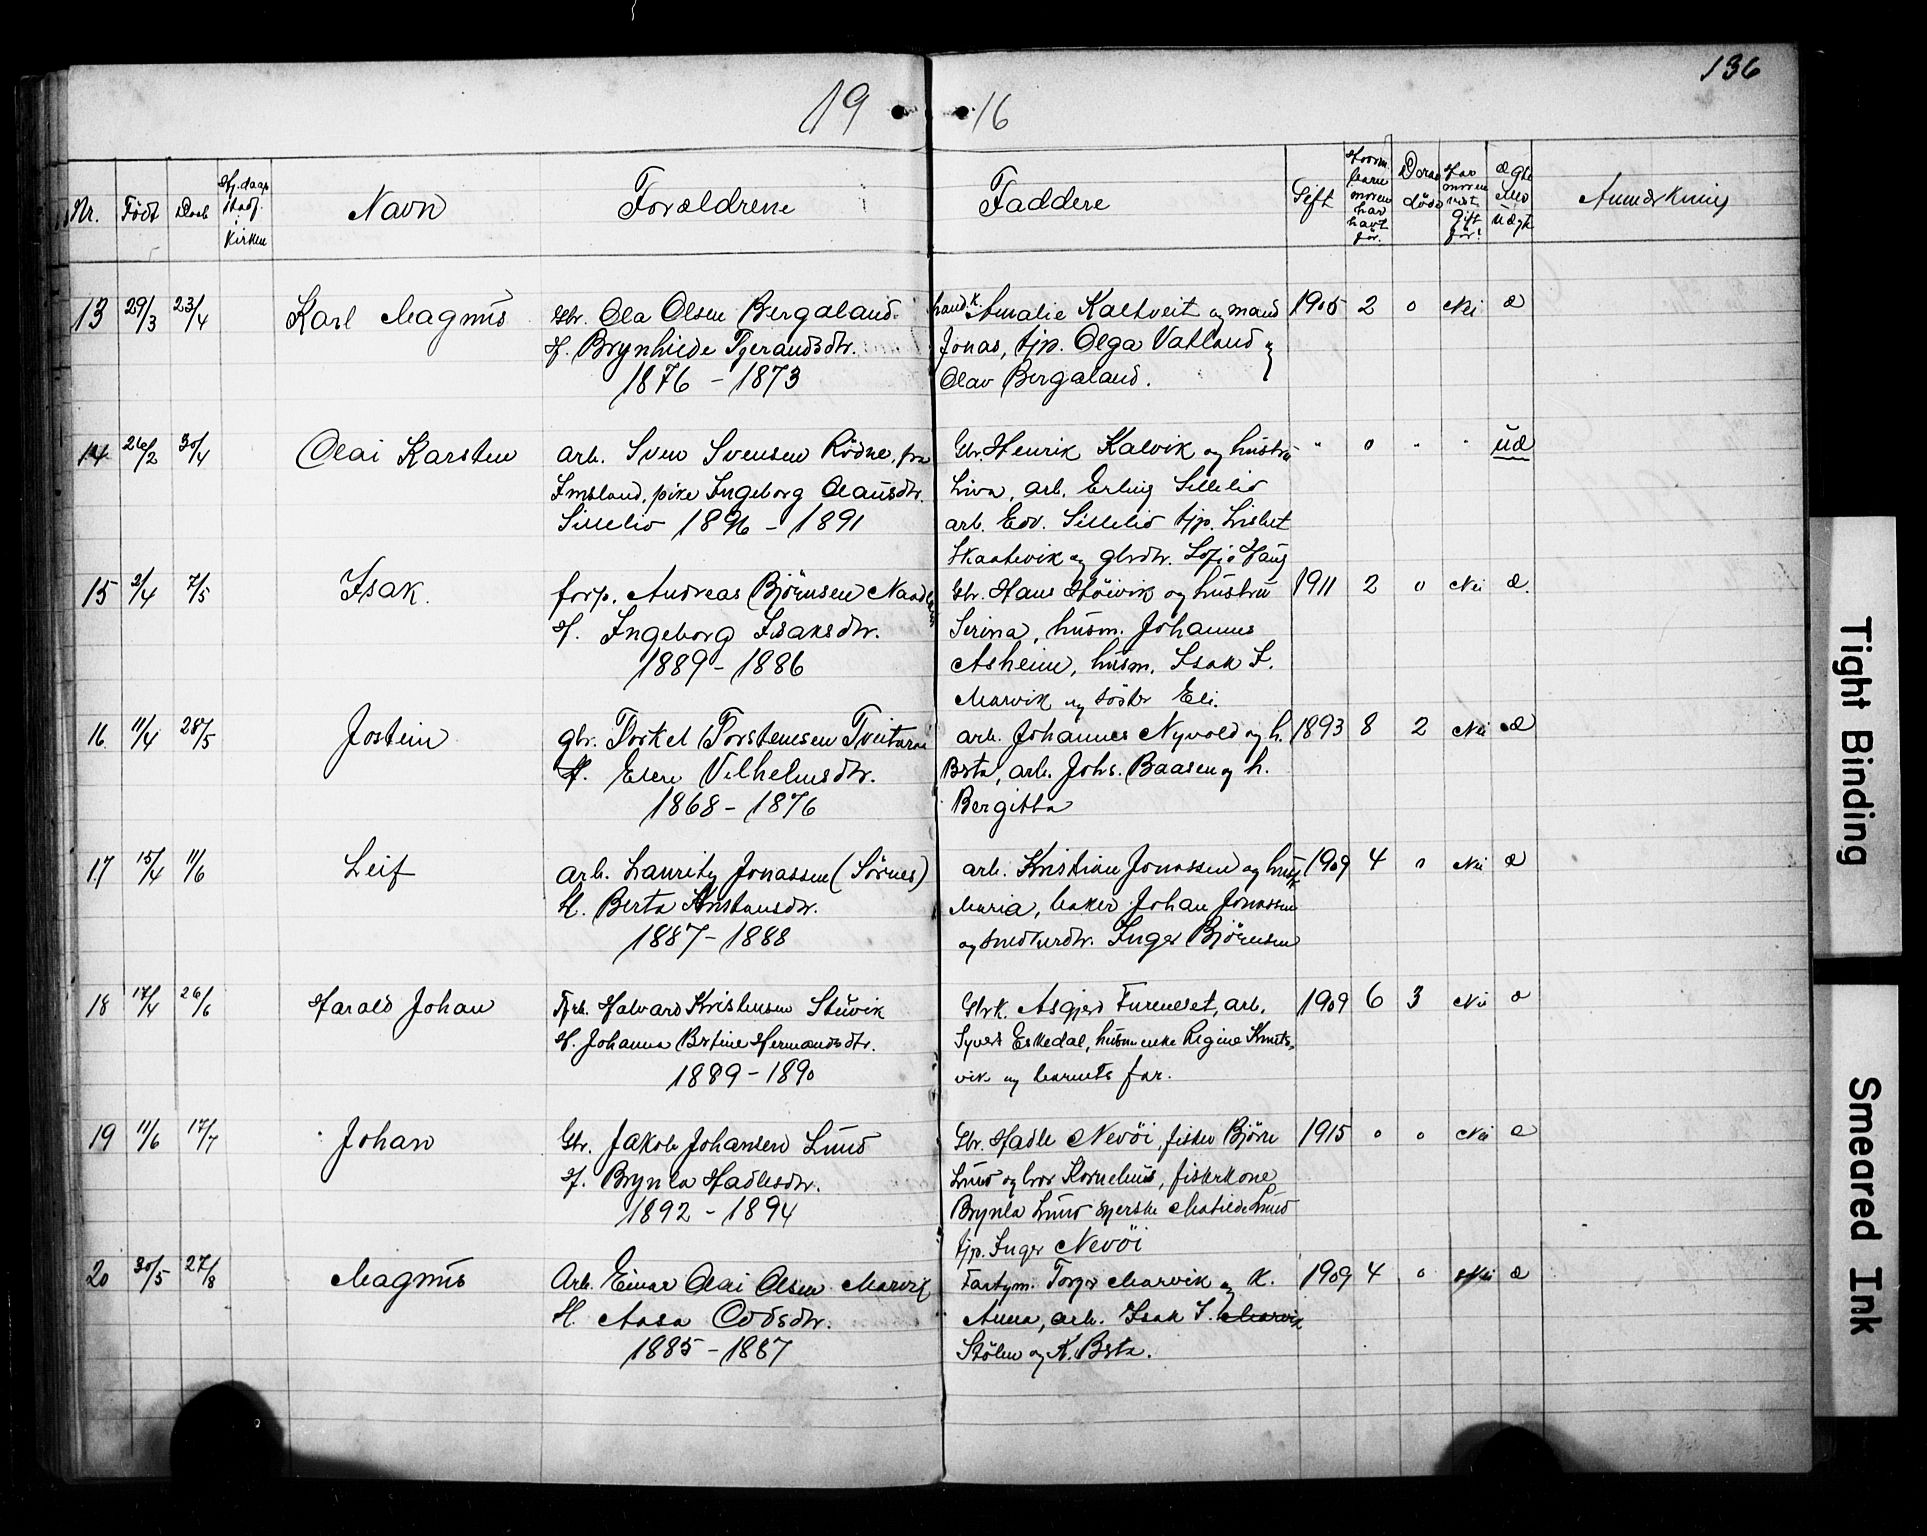 136
19 16
Nr. Født Døbt Hj.daap stadf. i kirken Navn Forældrene Faddere Gift Hvorm. barn moren har havt før. Derav døde Har moren vært Gift før? Ægte eller Uægte Anmerkning
13 29/3 23/4 Karl Magnus Gbr. Ola Olsen Bergaland. hand.k. Amalie Kaltveit og mand 1905 2 0 Nei æ
H. Brynhilde Tjerandsdtr. Jonas, tjp. Olga Vatland og
1876 - 1873 Olav Bergaland.
14 26/2 30/4 Olai Karsten arb. Sven Svensen Rødne, fra Gbr. Henrik Kalvik og hustru " 0 " " uæ
Imsland, pike Ingeborg Olausdtr. Liva, arb. Erling Sillelid
Sillelid 1896 - 1891 arb. Edv. Sillelid tjp. Lisbet
Skaatevik og gbrdtr. Sofie Haug
15 2/4 7/5 Isak. forp. Andreas Bjørnsen Gbr. Hans Støivik og hustru 1911 2 0 Nei æ.
H. Ingeborg Isaksdtr. Serina, husm. Johannes
1889 - 1886 Asheim, husm. Isak I.
Marvik og søster Eli.
16 11/4 28/5 Jostein gbr. Torkel Torstensen arb. Johannes Nyvold og h. 1893 8 2 Nei æ
H. Elen Vilhelmsdtr. Berta, arb. Johs. Baasen og h.
1868 - 1876 Bergitta
17 15/4 11/6 Leif arb. Lauritz Jonassen (Sørnes) arb. Kristian Jonassen og hust. 1909 4 0 Nei æ
H. Berta Kristensdtr. Maria, baker Johan Jonassen
1887 - 1888 og Inger Bjørnsen
18 17/4 26/6 Harald Johan Fjrb. Halvard Kristensen Stuvik Gbrk. Asgjerd Fureneset, arb. 1909 6 3 Nei æ
H. Johanna Bertine Hermandsdtr. Syvert Eskedal, husm enke Regine Knuts-
1889 - 1890 vik og barnets far.
19 11/6 17/7 Johan Gbr. Jakob Johansen Lund Gbr. Hadle Nevøi, fisker Bjørn 1915 0 0 Nei æ
H. Brynla Hadlesdtr. Lund og bror Kornelius, fiskerkone
1892 - 1894 Brynla Lund syerske Matilde Lund
tjp. Inger Nevøi
20 30/5 27/8 Magnus Arb. Einar Olai Olsen Marvik Fartym. Torger Marvik og K. 1909 4 0 Nei æ
H. Aasa Oddsdtr. Anna, arb. Isak I. Marvik
1885 - 1887 Stølen og K. Berta.
Tight Binding
Smeared Ink